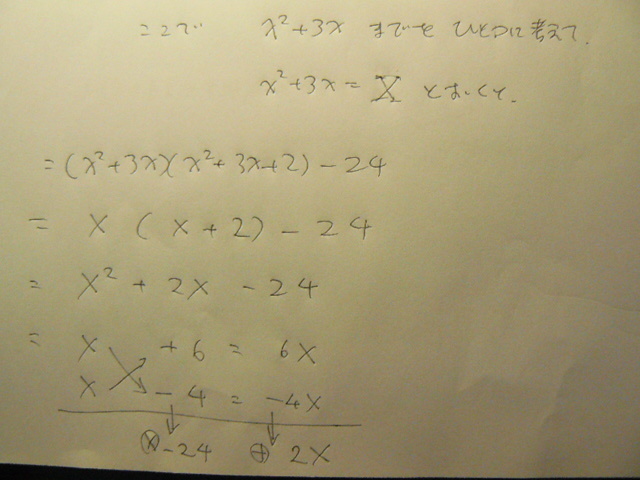 ここで x²+3x までを ひとつに考えて.
x²+3x = X とおくと.
=(x²+3x)(x²+3x+2)-24
= X (X+2)-24
= X²+2X-24
= X +6 = 6X
X -4 = -4X
⊗-24 ⊕ 2X